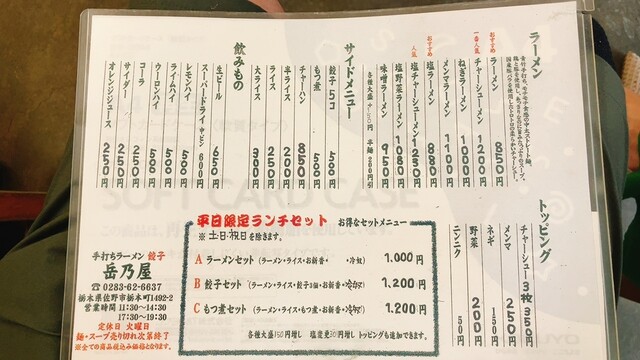 ラーメン
青竹手打ち、モチモチ食感の中太ストレート麺。
おすすめ
ラーメン 850円
一番人気
チャーシューメン 1200円
ねぎラーメン 1000円
メンマラーメン 1100円
おすすめ
塩ラーメン 880円
人気
塩チャーシューメン 1230円
塩野菜ラーメン 1080円
味噌ラーメン 950円
サイドメニュー
餃子5コ 500円
もつ煮 500円
チャーハン 850円
半ライス 200円
ライス 250円
大ライス 300円
飲みもの
生ビール 650円
スーパードライ中ビン 600円
レモンハイ 500円
ライムハイ 500円
ウーロンハイ 500円
コーラ 250円
サイダー 250円
オレンジジュース 250円
トッピング
チャーシュー3枚 350円
メンマ 250円
ネギ 150円
野菜 200円
ニンニク 50円
平日限定ランチセット お得なセットメニュー
※土日・祝日を除きます。
A ラーメンセット (ラーメン・ライス・お新香・冷奴) 1,000円
B 餃子セット (ラーメン・ライス・餃子3個・お新香・冷奴) 1,200円
C もつ煮セット (ラーメン・ライス・もつ煮・お新香・冷奴) 1,200円
各種大盛150円増し 塩変更30円増し トッピングも追加できます。
手打ちラーメン 餃子
岳乃屋
☎0283-62-6637
栃木県佐野市栃本町1492-2
営業時間 11:30~14:30
17:30~19:30
定休日 火曜日
麺・スープ売り切れ次第終了
※全ての商品税込み価格となります。
SOFT CARD CASE